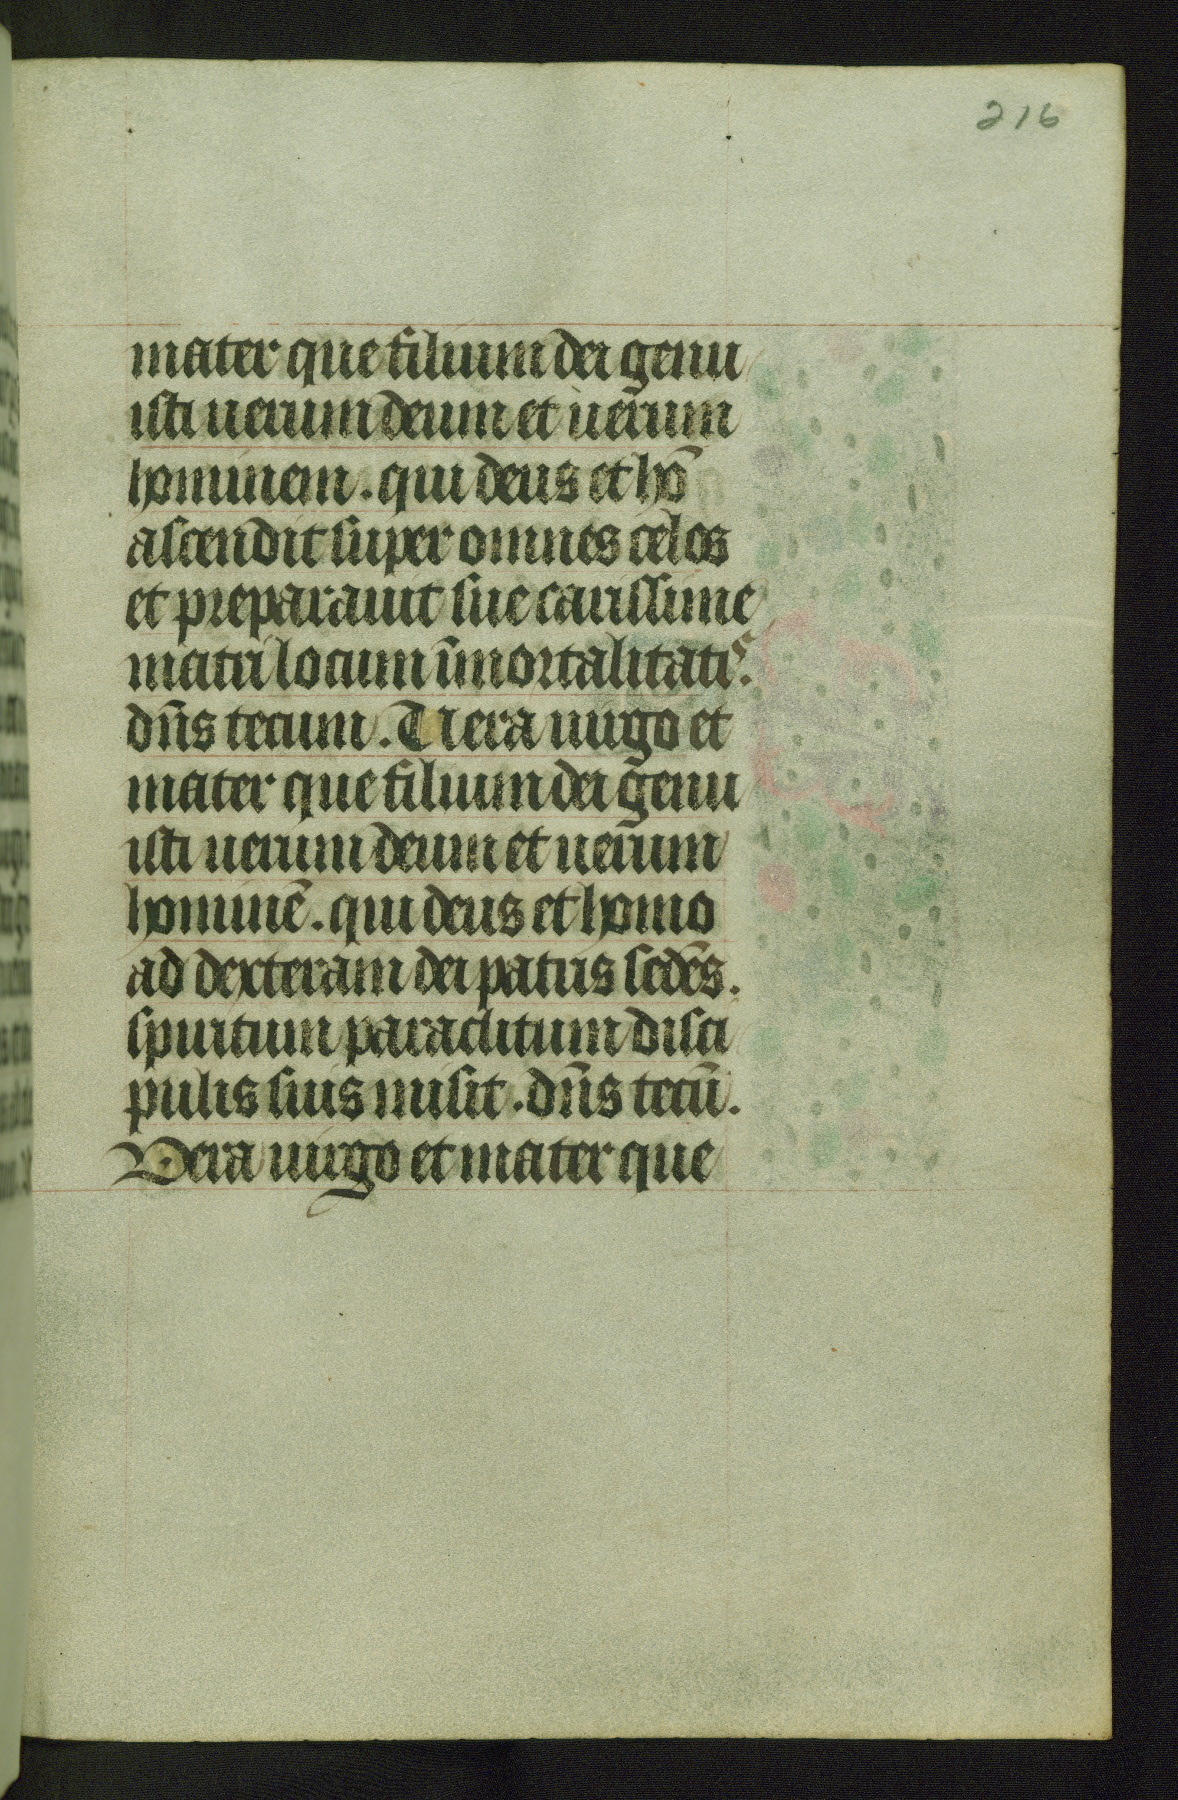 216
mater que filium dei genu
isti uerum deum et uerum
hominem. qui deus et hō
ascendit super omnes celos
et preparauit sue carissime
matri locum īmortalitatis.
dn̄s tecum. Uera uirgo et
mater que filium dei genu
isti uerum deum et uerum
hominē. qui deus et homo
ad dexteram dei patris sedēs.
spiritum paraclitum disci
pulis suis misit. dn̄s tecū.
Vera uirgo et mater que